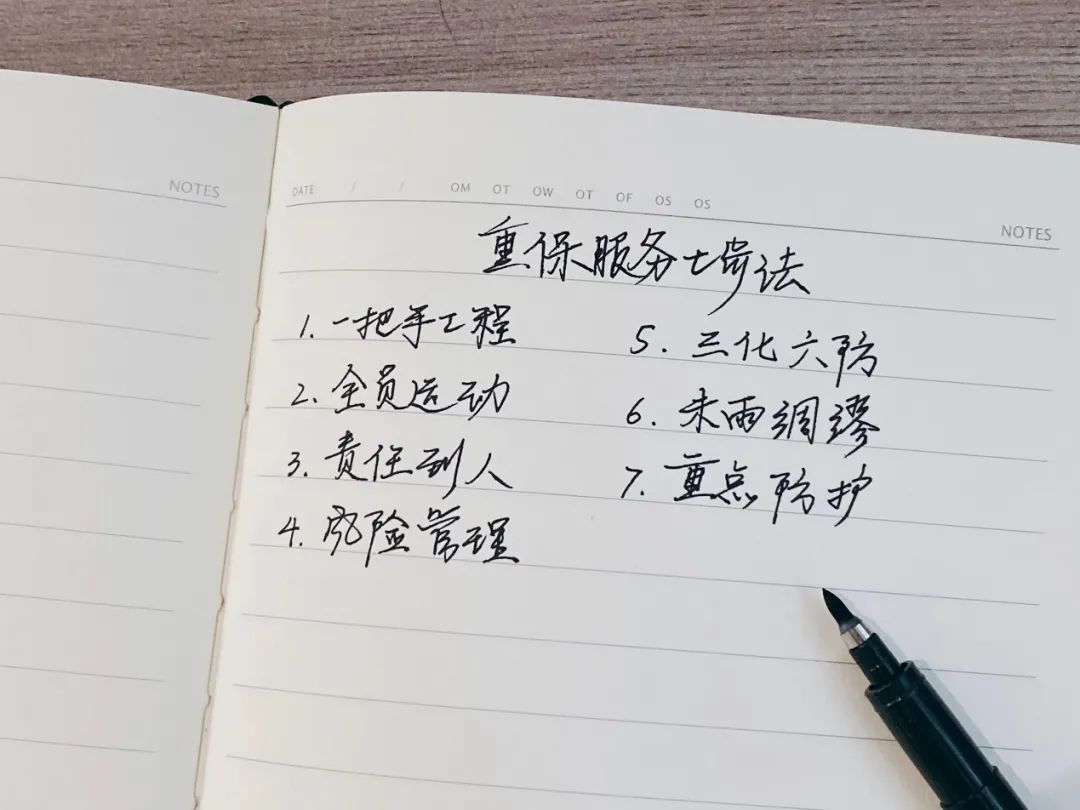 NOTES
DATE / / OM OT OW OT OF OS OS
NOTES
重保服务七步法
1. 一把手工程
2. 全员运动
3. 责任到人
4. 风险管理
5. 三化六防
6. 未雨绸缪
7. 重点防护